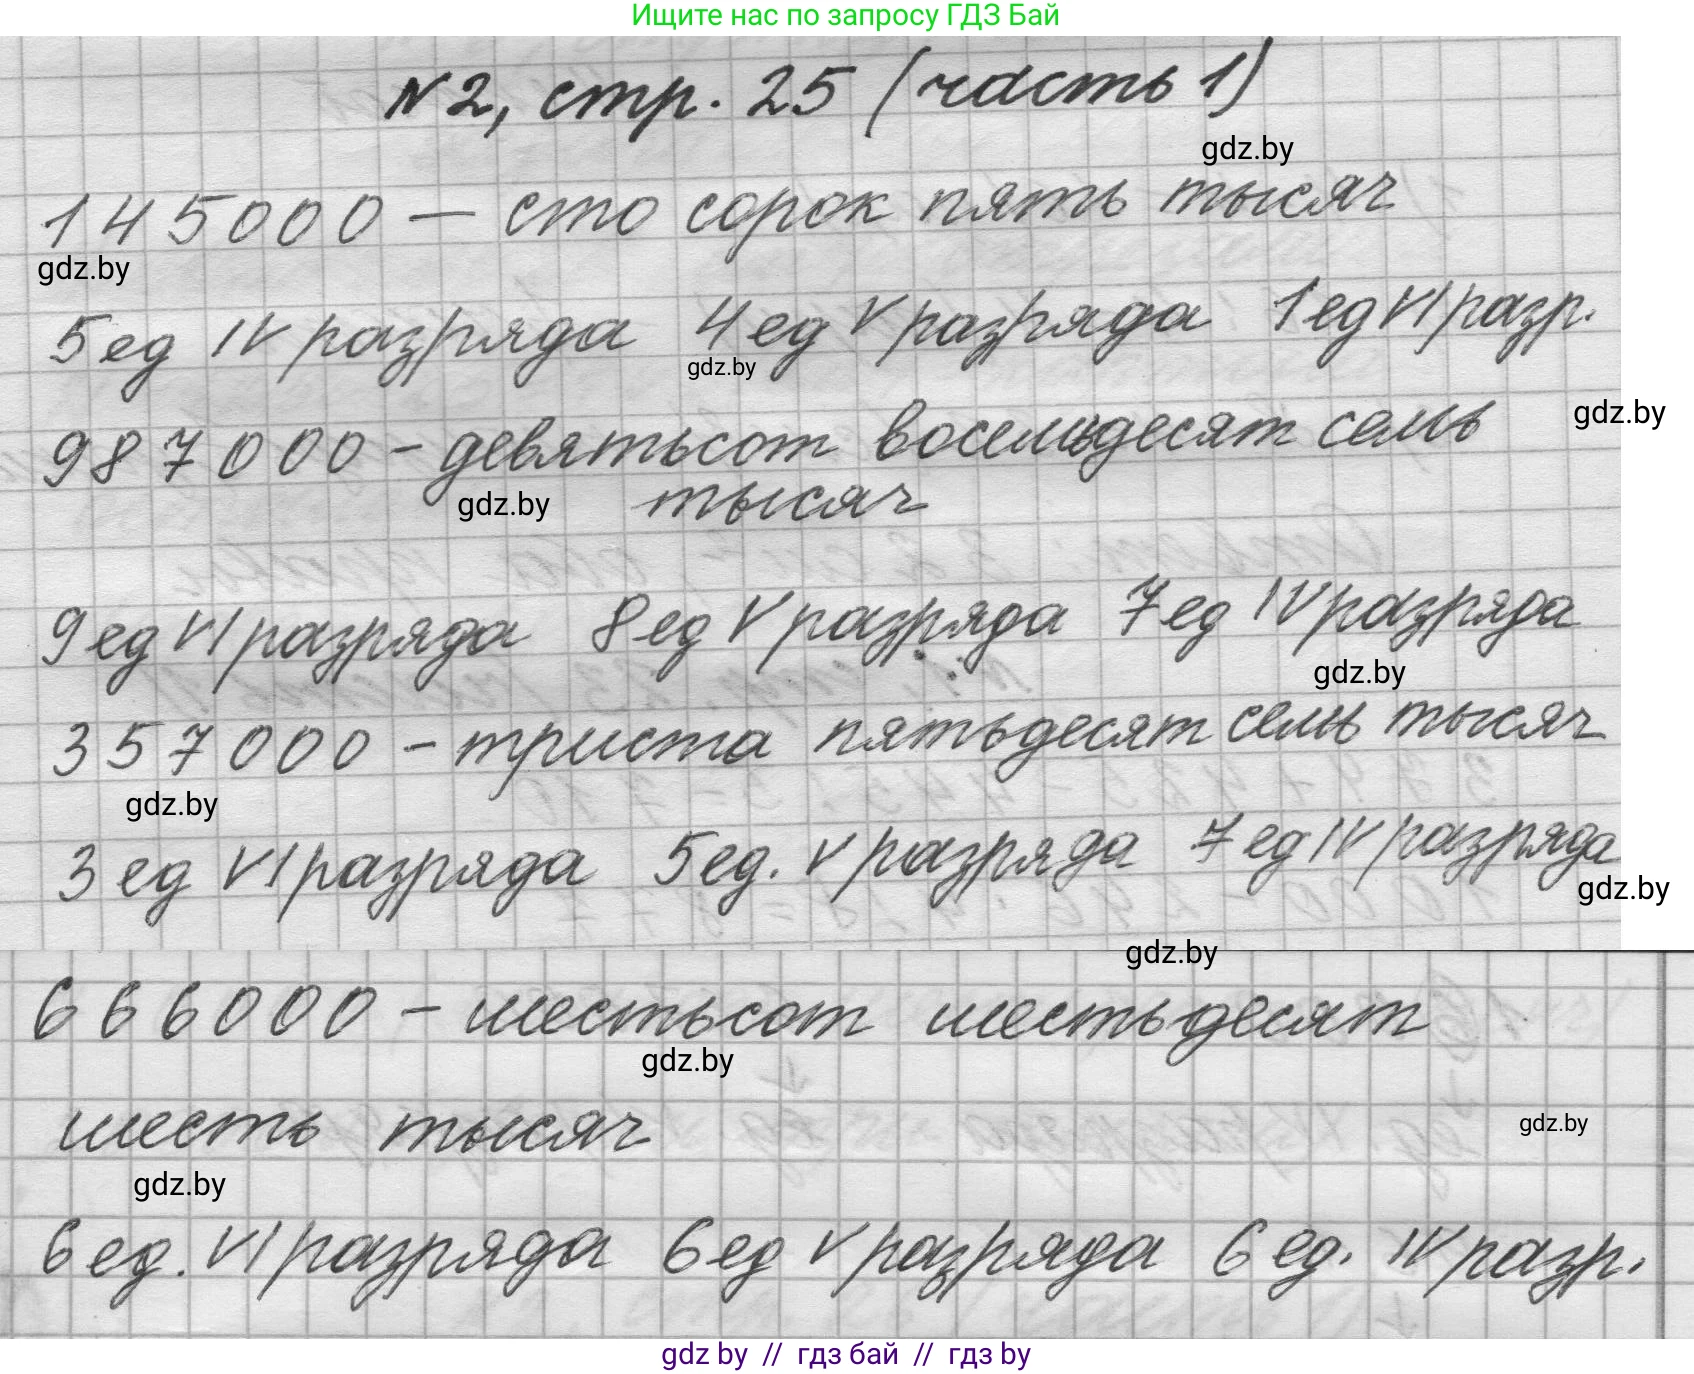 Ищите нас по запросу ГДЗ Бай
N2, стр. 25 (часть 1)
gdz.by
145000 — сто сорок пять тысяч
gdz.by
5ед IV разряда 4ед V разряда 1ед VI разр.
gdz.by
gdz.by
987000 - девятьсот восемьдесят семь
gdz.by тысяч
9ед VI разряда 8ед V разряда 7ед IV разряда
gdz.by
357000 - триста пятьдесят семь тысяч
gdz.by
3 ед VI разряда 5ед. V разряда 7ед IV разряда
gdz.by
gdz.by
666000 - шестьсот шестьдесят
gdz.by
шесть тысяч
gdz.by
gdz.by
6 ед. VI разряда 6ед V разряда 6 ед. IV разр.
gdz by // гдз бай // гдз by